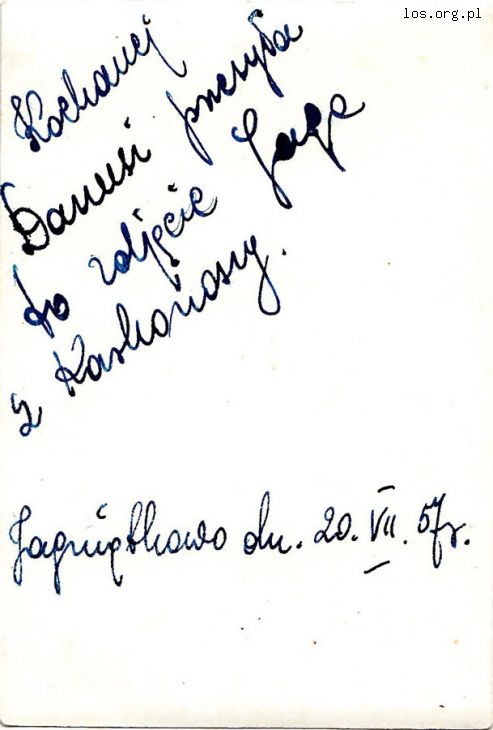 los.org.pl
Kochanej
Danusi przesyła
to zdjęcie Jaga
z Karkonoszy.
Jagniątkowo dn. 20. VII. 57r.